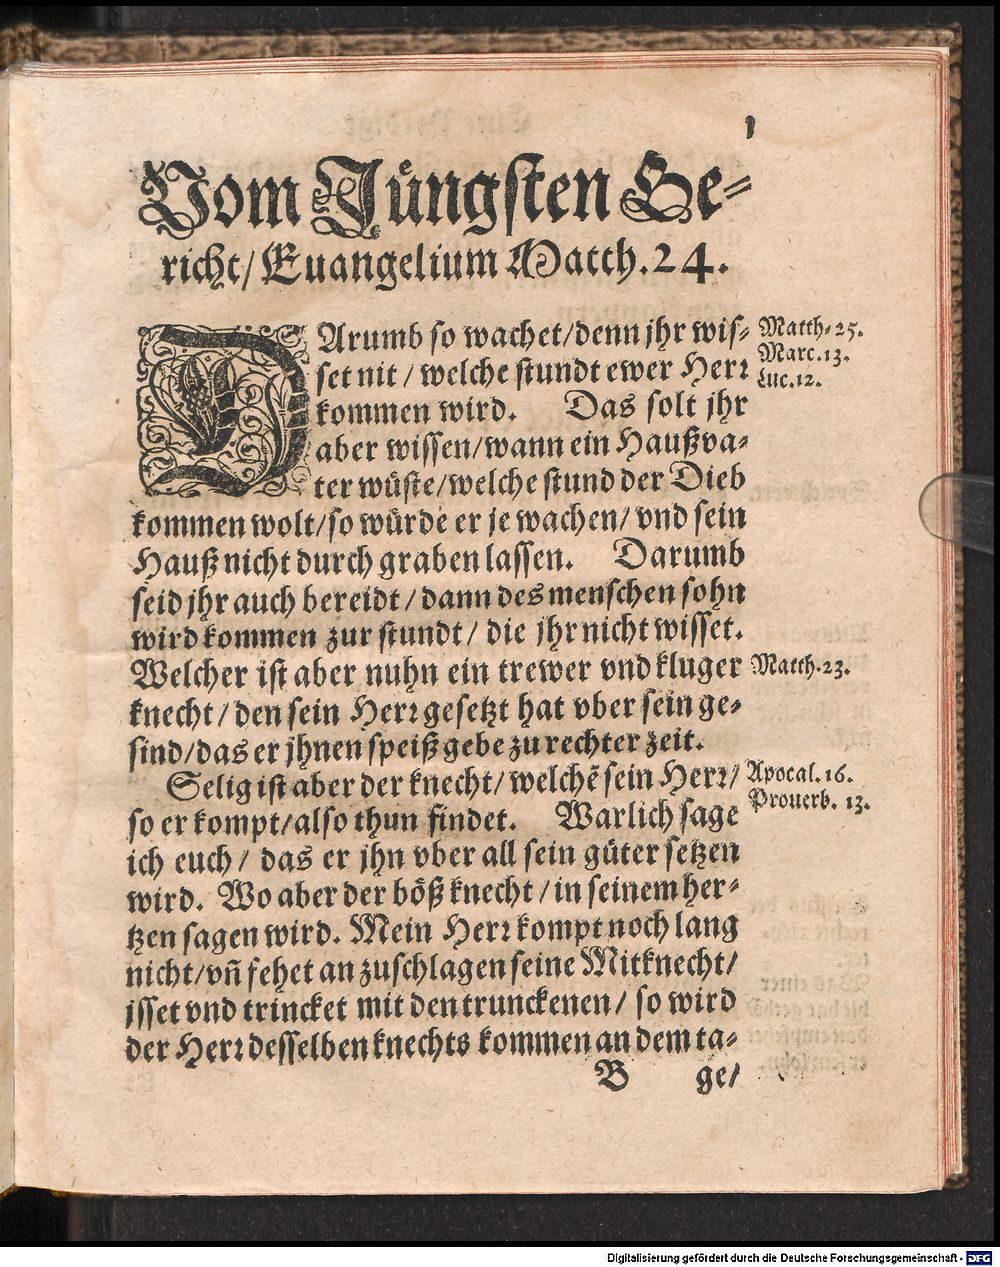 1
Vom Jüngsten Ge-
richt/ Euangelium Matth. 24.
DArumb so wachet/denn jhr wis-
set nit / welche stundt ewer Herr
kommen wird. Das solt jhr
aber wissen/wann ein Haußva-
ter wüste/welche stund der Dieb
kommen wolt/so würde er je wachen/ vnd sein
Hauß nicht durch graben lassen. Darumb
seid jhr auch bereidt / dann des menschen sohn
wird kommen zur stundt / die jhr nicht wisset.
Welcher ist aber nuhn ein trewer vnd kluger
knecht / den sein Herr gesetzt hat vber sein ge-
sind/das er jhnen speiß gebe zu rechter zeit.
Selig ist aber der knecht/ welchē sein Herr/
so er kompt/also thun findet. Warlich sage
ich euch / das er jhn vber all sein güter setzen
wird. Wo aber der böß knecht / in seinem her-
tzen sagen wird. Mein Herr kompt noch lang
nicht/vñ fehet an zuschlagen seine Mitknecht/
isset vnd trincket mit den trunckenen / so wird
der Herr desselben knechts kommen an dem ta-
B ge/
Matth. 25.
Marc. 13.
Luc. 12.
Matth. 23.
Apocal. 16.
Prouerb. 13.
Digitalisierung gefördert durch die Deutsche Forschungsgemeinschaft - DFG